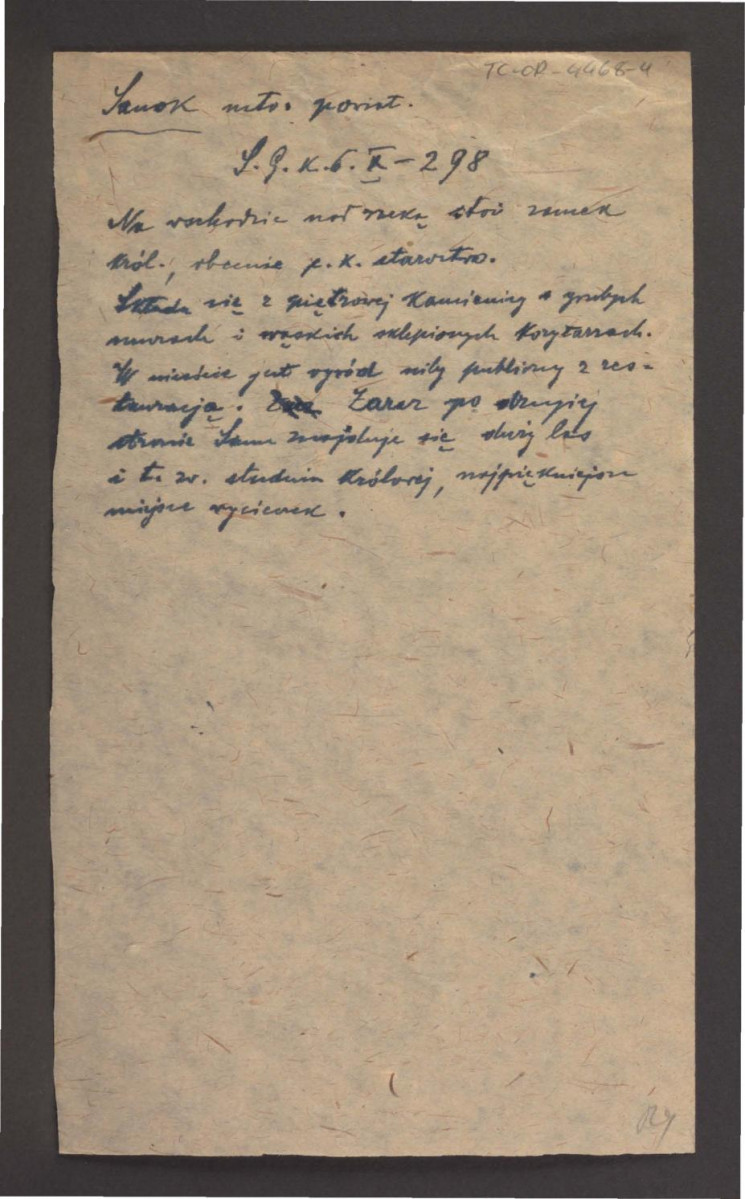 TC-OR-4468-4
Sanok mto. powiat.
S. G. K. P. X - 298
Na wschodzie nad rzeką stoi zamek
król., obecnie c. k. starostwo.
Składa się z piętrowej kamienicy o grubych
murach i wąskich sklepionych korytarzach.
W mieście jest ogród miły publiczny z res-
tauracją. Zaraz po drugiej
stronie Sanu znajduje się duży las
i t. zw. studnia królowej, najpiękniejsze
miejsce wycieczek.